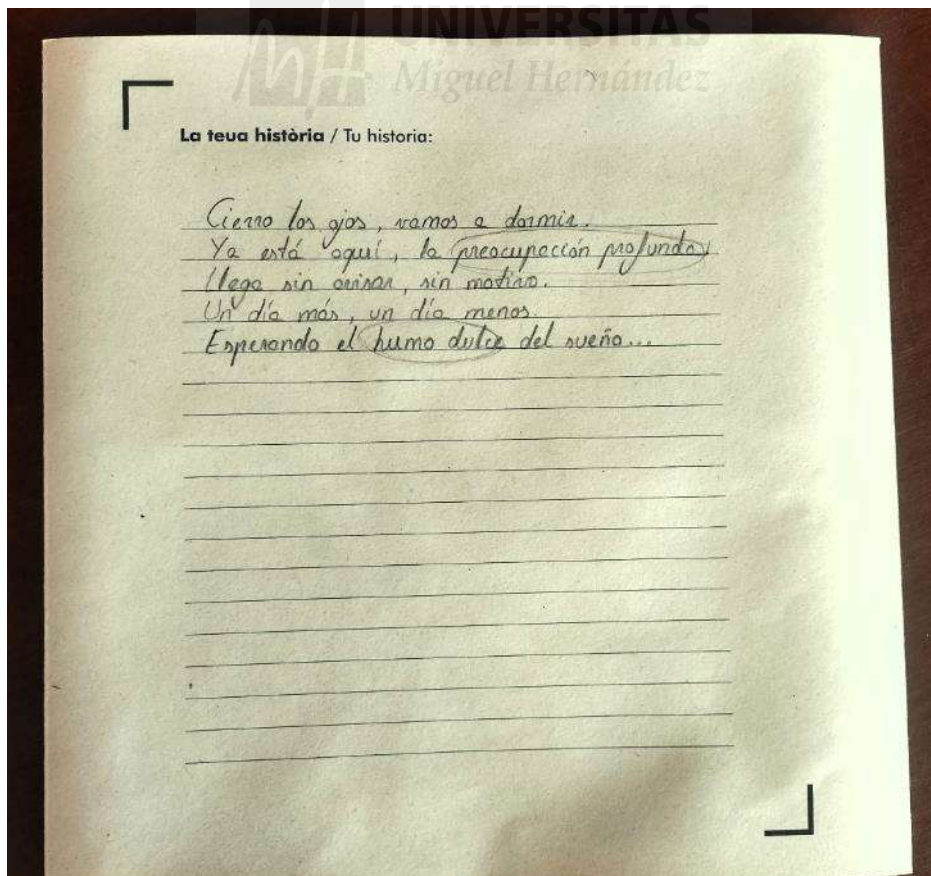 UNIVERSITAS
Miguel Hernández
La teua història / Tu historia:
Cierro los ojos, vamos a dormir.
Ya está aquí, la preocupación profunda,
llega sin avisar, sin motivo.
Un día más, un día menos.
Esperando el humo dulce del sueño...